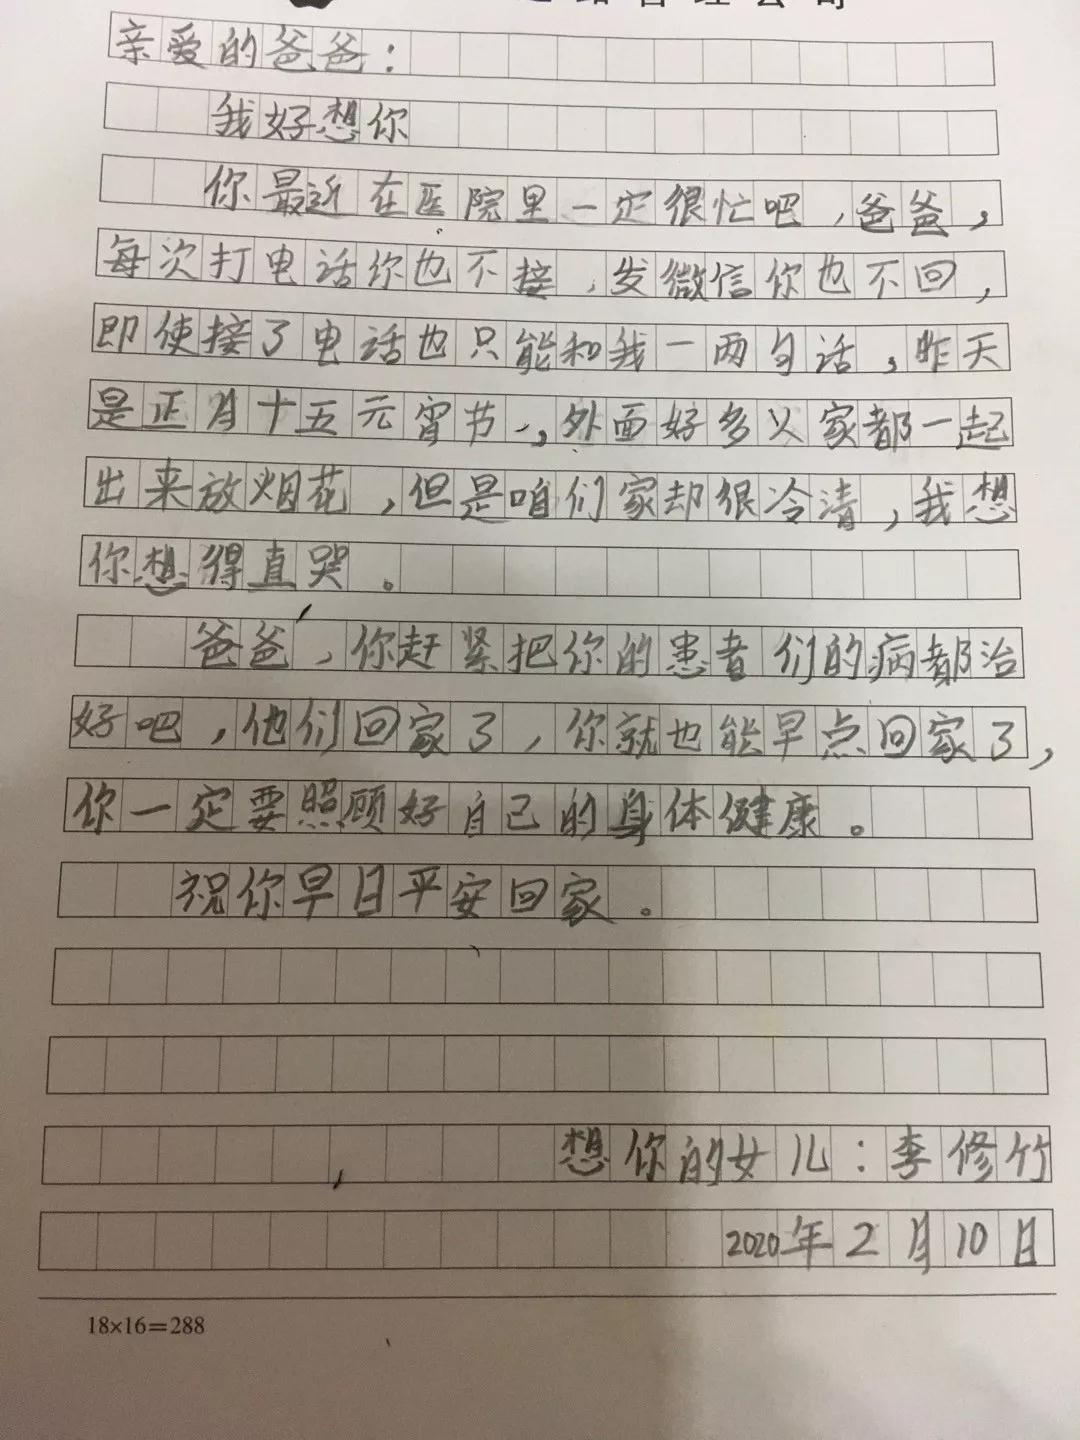 理公司
亲爱的爸爸：
我好想你
你最近在医院里一定很忙吧，爸爸，
每次打电话你也不接，发微信你也不回，
即使接了电话也只能和我一两句话，昨天
是正月十五元宵节、，外面好多人家都一起
出来放烟花，但是咱们家却很冷清，我想
你想得直哭。
爸爸，你赶紧把你的患者们的病都治
好吧，他们回家了，你就也能早点回家了，
你一定要照顾好自己的身体健康。
祝你早日平安回家。
想你的女儿：李修竹
2020年2月10日
18×16=288